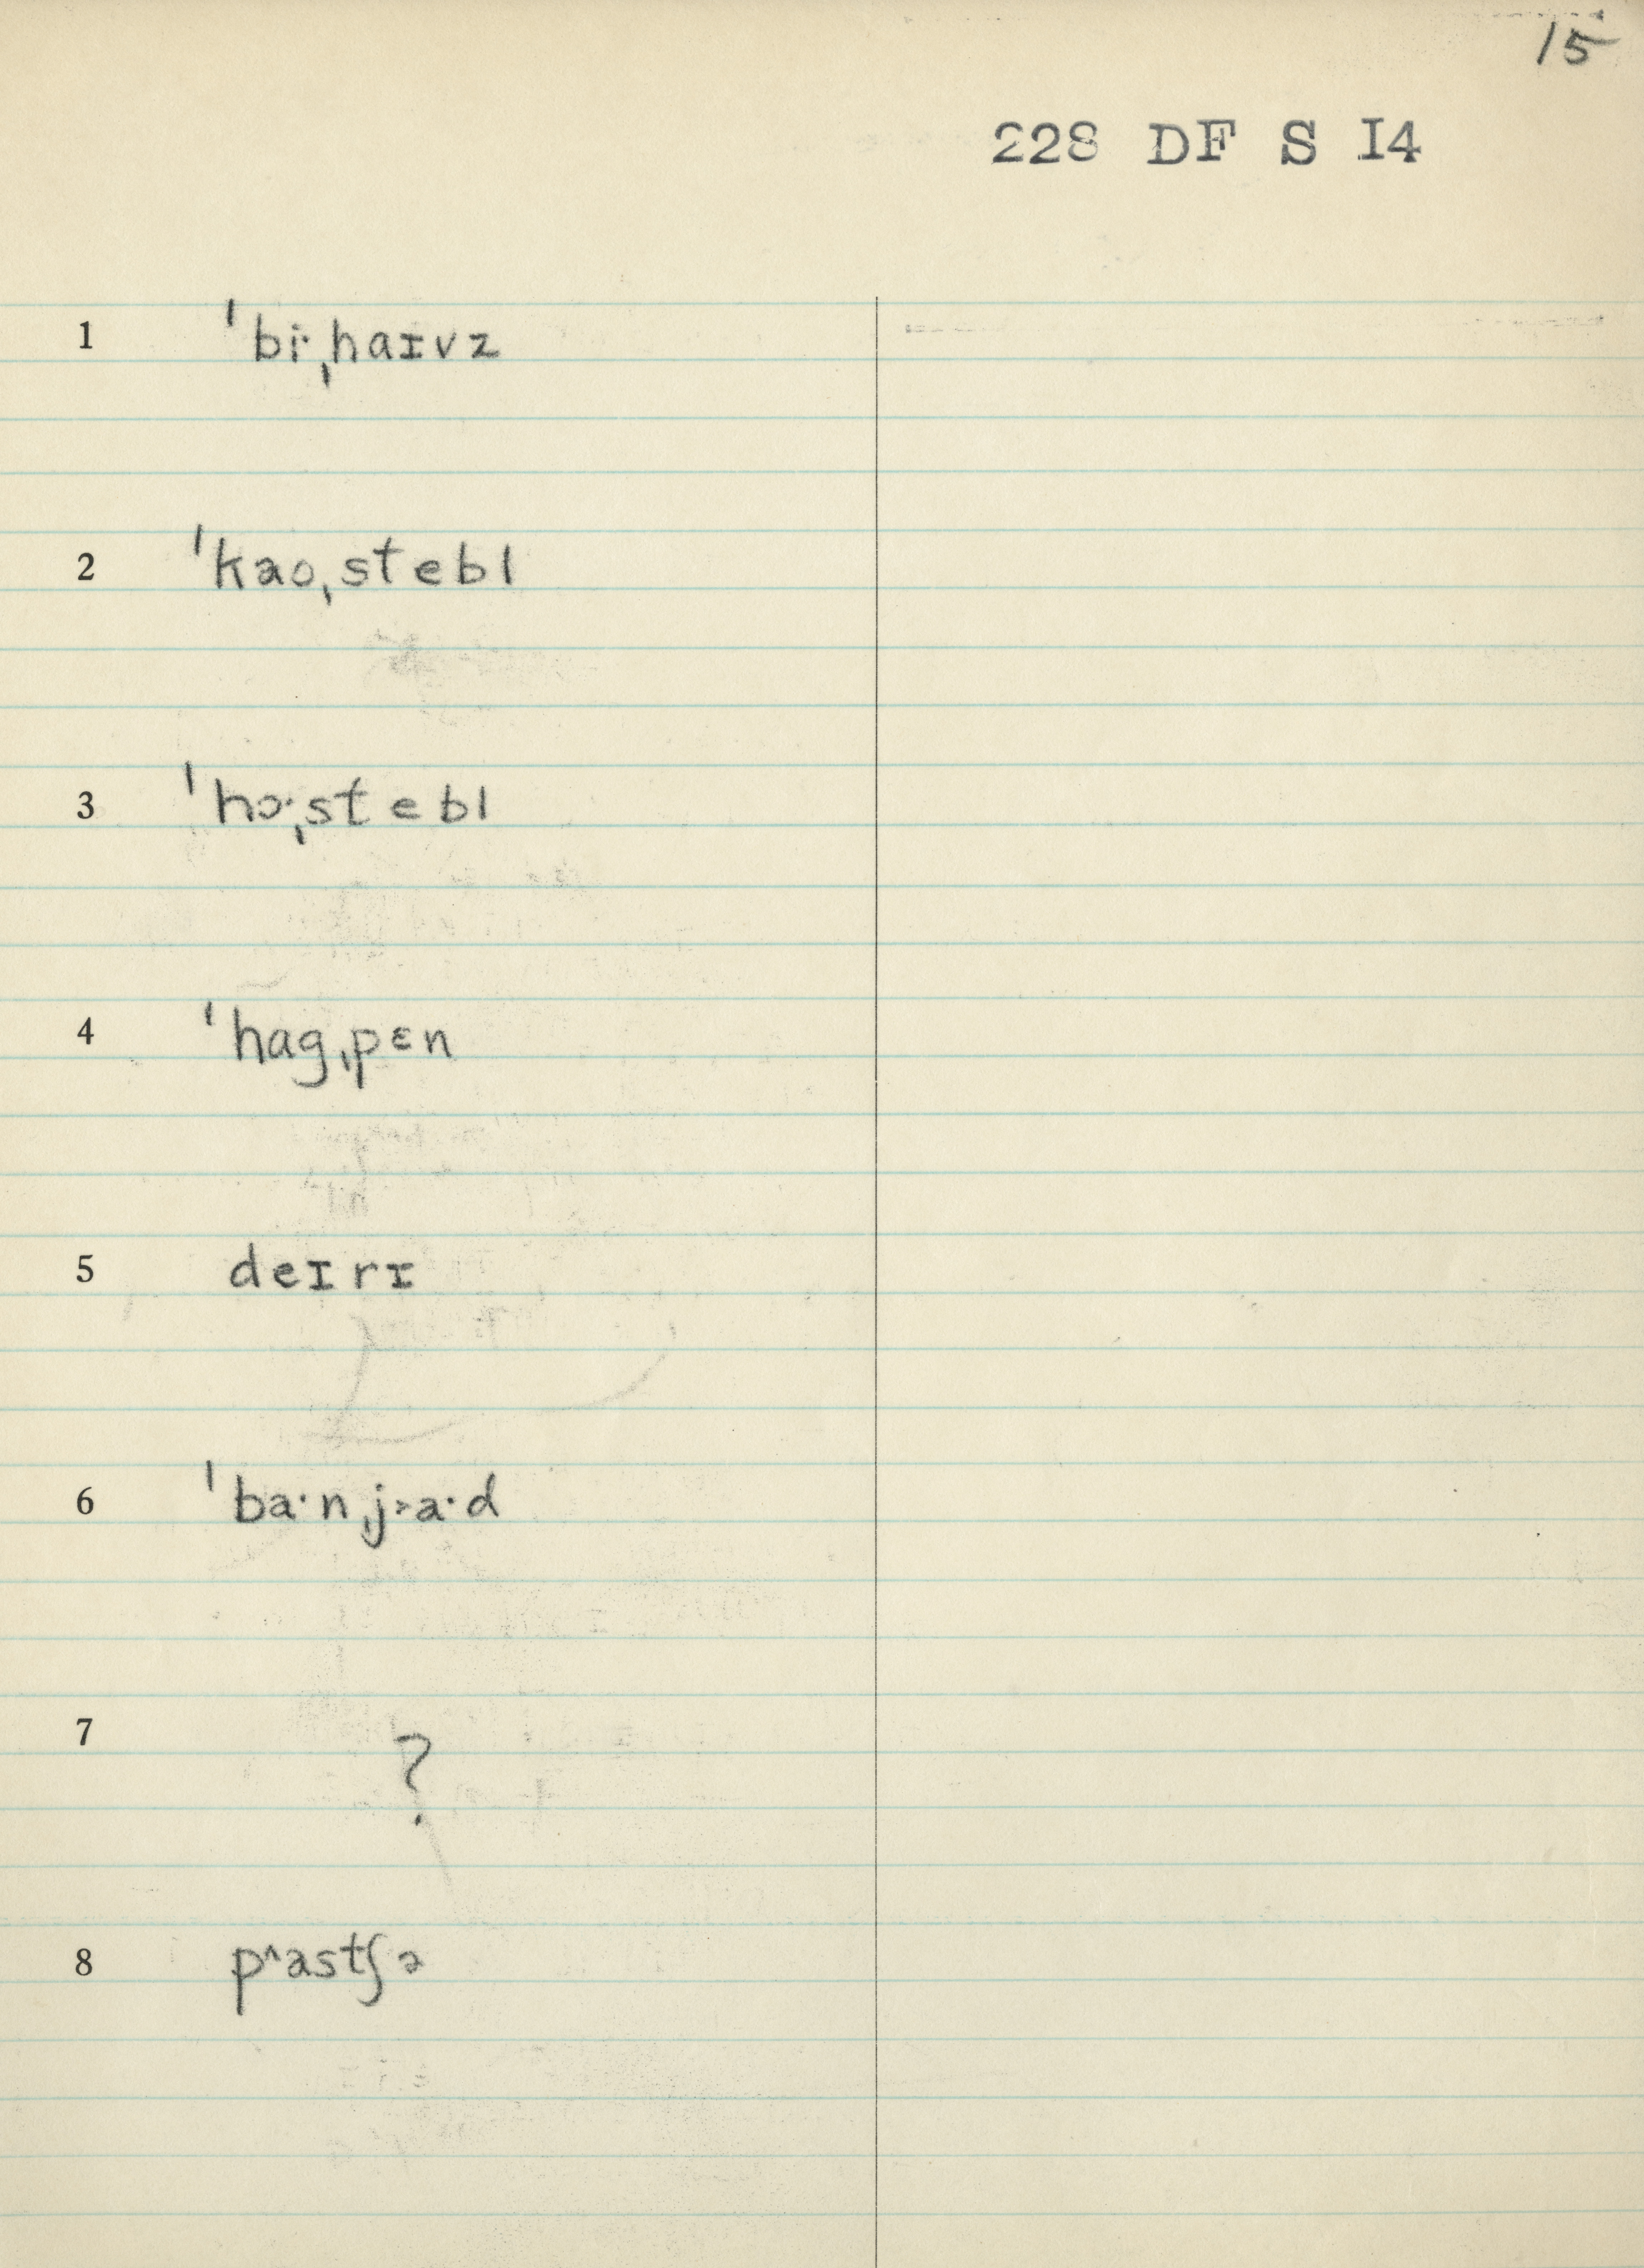 15
228 DF S I4
1 ˈbiˑˌhaɪvz
2 ˈkaoˌstebl
3 ˈhɔˑˌstebl
4 ˈhagˌpɛn
5 deɪrɪ
6 ˈbaˑnˌj˃aˑd
7 ?
8 p^astʃə